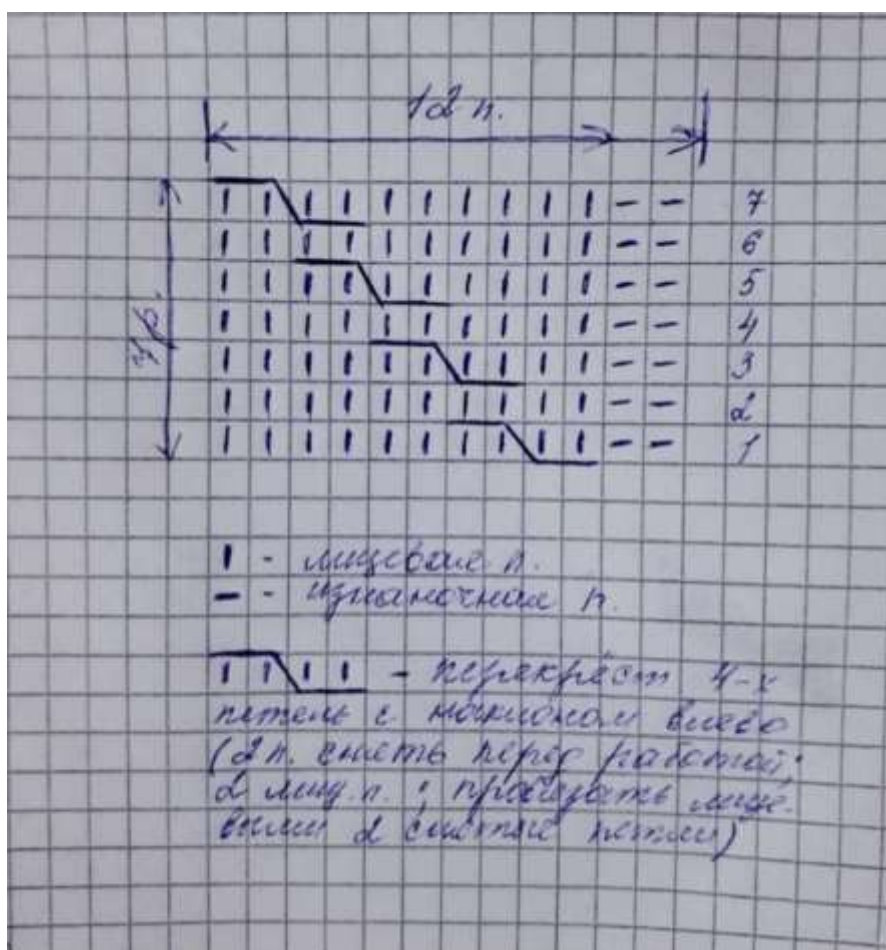 12 п.
| | | | | | | | | | – – 7
| | | | | | | | | | – – 6
| | | | | | | | | | – – 5
7 р.
| | | | | | | | | | – – 4
| | | | | | | | | | – – 3
| | | | | | | | | | – – 2
| | | | | | | | | | – – 1
| - лицевая п.
– - изнаночная п.
| | | | - перекрест 4-х
петель с наклоном влево
(2 п. снять перед работой;
2 лиц. п.; провязать лице-
выми 2 снятые петли)